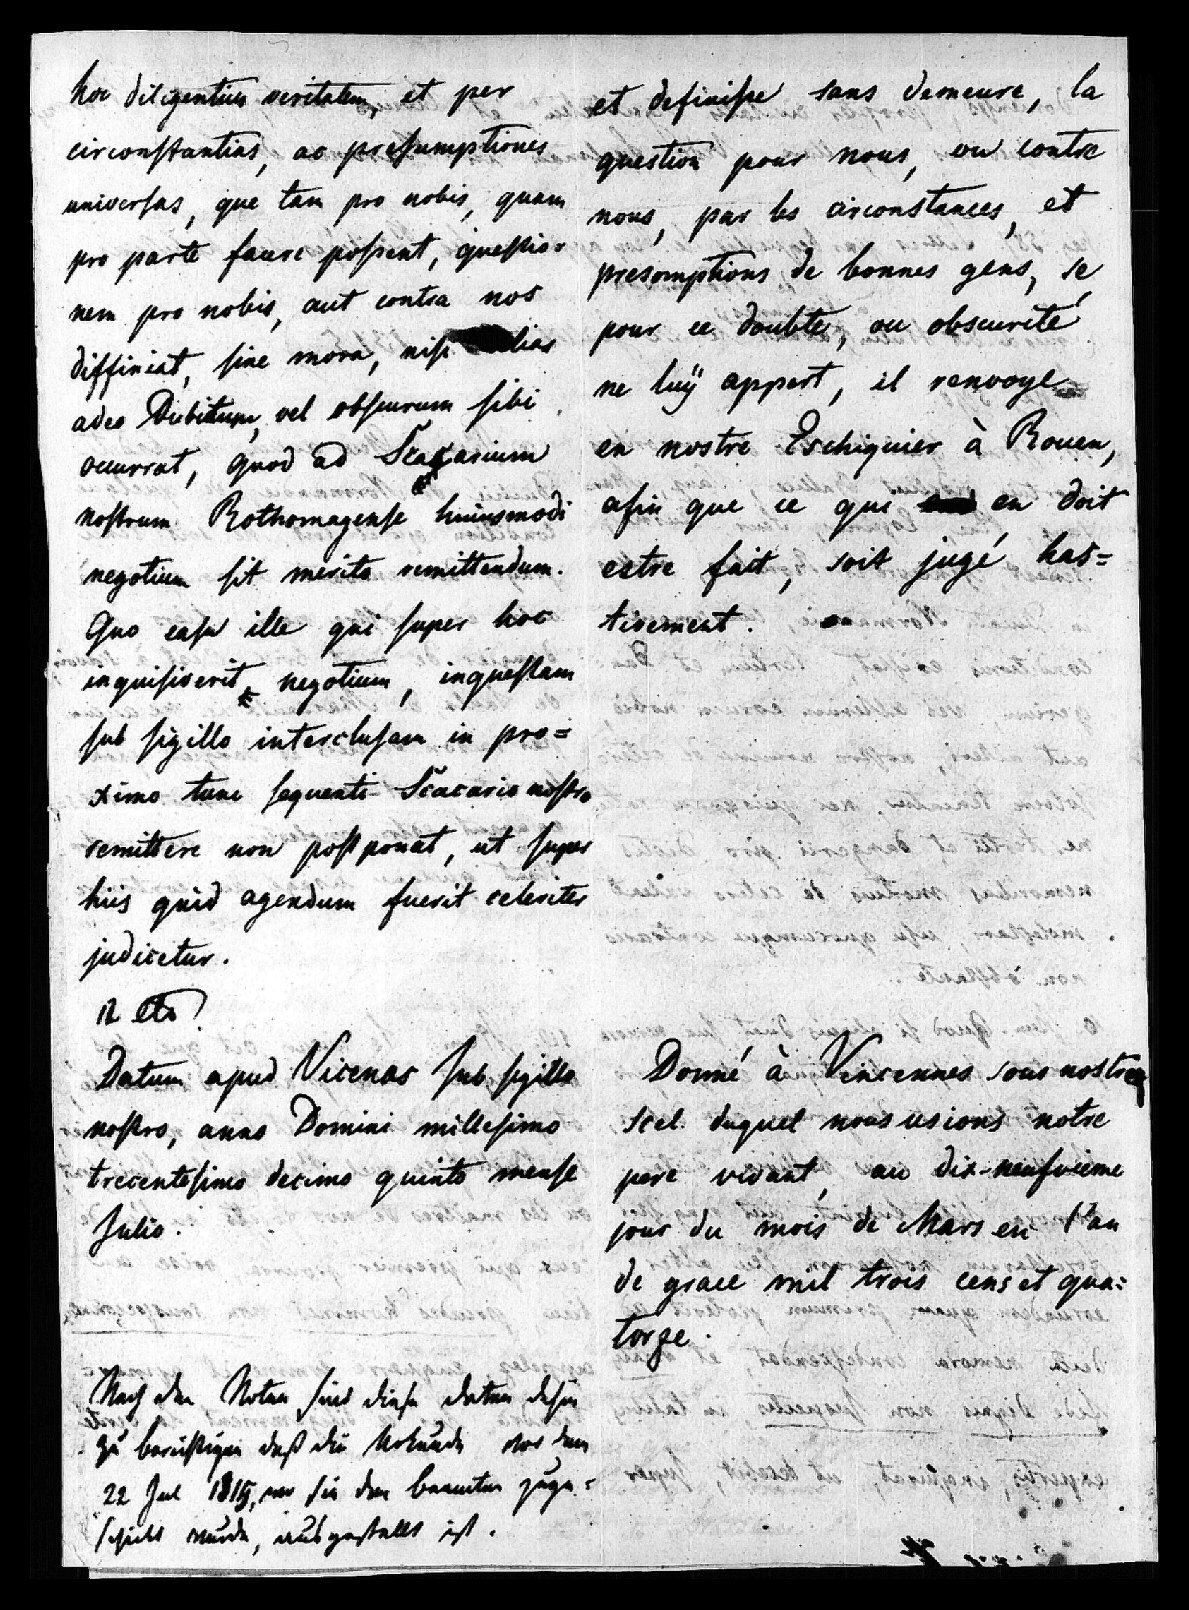 hoc diligentius veritatem, et per
circonstantias, ac presumptiones
universas, que tam pro nobis, quam
pro parte facere possent, questio-
nem pro nobis, aut contra nos
diffiniat, sine mora, nisi alias
adeo Dubitum, vel obscurum sibi
occurrat, quod ad Scacarium
nostrum Rothomagense huiusmodi
negotium sit merito remittendum.
Quo casu ille qui super hoc
inquisiverit negotium, inquestam
sub sigillo interclusam in pro=
ximo tunc sequenti Scacario nostro
remittere non postponat, ut super
hiis quid agendum fuerit celeriter
judicetur.
12 etc
Datum apud Vicenas sub sigillo
nostro, anno Domini millesimo
trecentesimo decimo quinto mense
Julio.
Nach den Noten sind diese daten dahin
zu berichtigen daß die Urkunde vor dem
22 Jul 1315, wo sie den beamten zuge-
schickt wurde, ausgestellt ist.
et definisse sans demeure, la
question pour nous, ou contre
nous, par les circonstances, et
presomptions de bonnes gens, se
pour ce doubte, ou obscurité
ne luÿ appert, il renvoye
en nostre Eschiquier à Rouen,
afin que ce qui en doit
estre fait, soit jugé has=
tivement.
Donné à Vincennes sous nostre
scel duquel nous usions notre
pere vivant, au dix-neufvieme
jour du mois de Mars en l'an
de grace mil trois cens et qua=
torze.